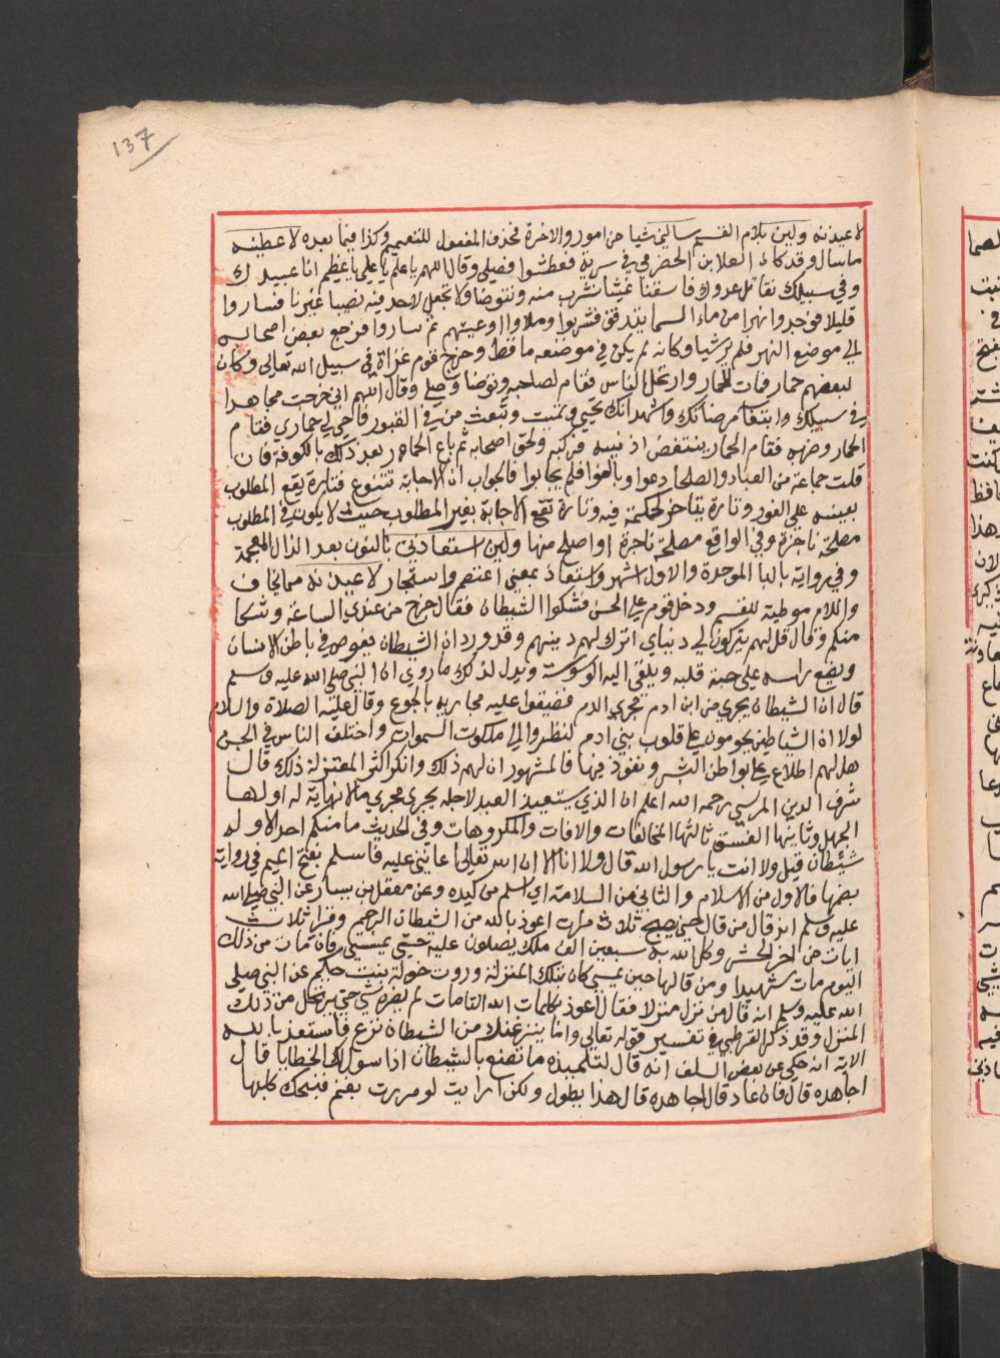 137
لاعيذنه ولين بلام القسم سالني شيا من امور والاخرة فحذف المفعول للتعميم وكذا فيما بعده لاعطينه
ما سال وقد كان العلا بن الحضرمي في سرية فعطشوا فصلي وقال اللهم يا عليم يا علي يا عظيم انا عبيدك
وفي سبيلك نقاتل عدوك فاسقنا غيثا نشرب منه ونتوضا ولا تجعل لاحد فيه نصيبا غيرنا فساروا
قليلا فوجدوا نهرا من ماء السما يتدفق فشربوا وملاوا اوعيتهم ثم ساروا فرجع بعض اصحابه
الي موضع النهر فلم ير شيا وكانه لم يكن في موضعه ما قط وخرج قوم غزاة في سبيل الله تعالي وكان
لبعضهم حمار فمات الحمار وارتحل الناس فقام لصلحبه وتوضا وصلي وقال اللهم اني خرجت مجاهدا
في سبيلك وابتغا مرضاتك واشهد انك تحيي وتميت وتبعث من في القبور فاحي لي حماري فقام
الحمار وضربه فقام الحمار ينتفض اذنيه فركبه ولحق اصحابه ثم باع الحمار بعد ذلك بالكوفة فان
قلت جماعة من العباد والصلحا دعوا وبالغوا فلم يجابوا فالجواب ان الاجابة تتنوع فتارة يقع المطلوب
بعينه علي الفور وتارة يتاخر لحكمة فيه وتارة تقع الاجابة بغير المطلوب حيث لا يكون في المطلوب
مصلحة ناجزة وفي الواقع مصلحة ناجزة او اصلح منها ولين استعاذني بالنون بعد الذال المعجمة
وفي رواية بالبا الموحدة والاول اشهر واستعاذ بمعني اعتصم واستجار لاعيذنه مما يخاف
واللام موطية للقسم ودخل قوم علي الحسن فشكوا الشيطان فقال خرج من عندي الساعة وشكا
منكم وقال قل لهم يتركون لي دنياي اترك لهم دينهم وقد ورد ان الشيطان يغوص في باطن الانسان
ويضع راسه علي حبة قلبه ويلقي اليه الوسوسة ويدل لذلك ما روي ان النبي صلي الله عليه وسلم
قال ان الشيطان يجري من ابن ادم مجري الدم فضيقوا عليه مجاريه بالجوع وقال عليه الصلاة والسلام
لولا ان الشياطين يحومون علي قلوب بني ادم لنظروا الي ملكوت السموات واختلف الناس في الجن
هل لهم اطلاع علي بواطن البشر ونفوذ فيها فالمشهور ان لهم ذلك وانكر اكثر المعتزلة ذلك قال
شرف الدين المرسي رحمه الله اعلم ان الذي يستعيذ العبد لاجله يجري مجري مالا نهاية له اولها
الجهل وثانيها الفسق ثالثها المخالفات والافات والمكروهات وفي الحديث ما منكم احد الا وله
شيطان قيل ولا انت يا رسول الله قال ولا انا الا ان الله تعالي اعانني عليه فاسلم بفتح الميم في رواية
بضمها فالاول من الاسلام والثاني من السلامة اي اسلم من كيده وعن معقل بن يسار عن النبي صلي الله
عليه وسلم انه قال من قال حين يصبح ثلاث مرات اعوذ بالله من الشيطان الرجيم وقرا ثلاث
ايات من اخر الحشر وكل الله به سبعين الف ملك يصلون عليه حتي يمسي فان مات من ذلك
اليوم مات شهيدا ومن قالها حين يمسي كان بتلك المنزلة وروت خولة بنت حكيم عن النبي صلي
الله عليه وسلم انه قال من نزل منزلا فقال اعوذ بكلمات الله التامات لم يضره شي حتي يرتحل من ذلك
المنزل وقد ذكر القرطبي في تفسير قوله تعالي واما ينزغنك من الشيطان نزغ فاستعذ بالله
الاية انه حكي عن بعض السلف انه قال لتلميذه ما تصنع بالشيطان اذا سول لك الخطايا قال
اجاهده قال فان عاد قال اجاهده قال هذا يطول ولكن ارايت لو مررت بغنم فنبحك كلبها